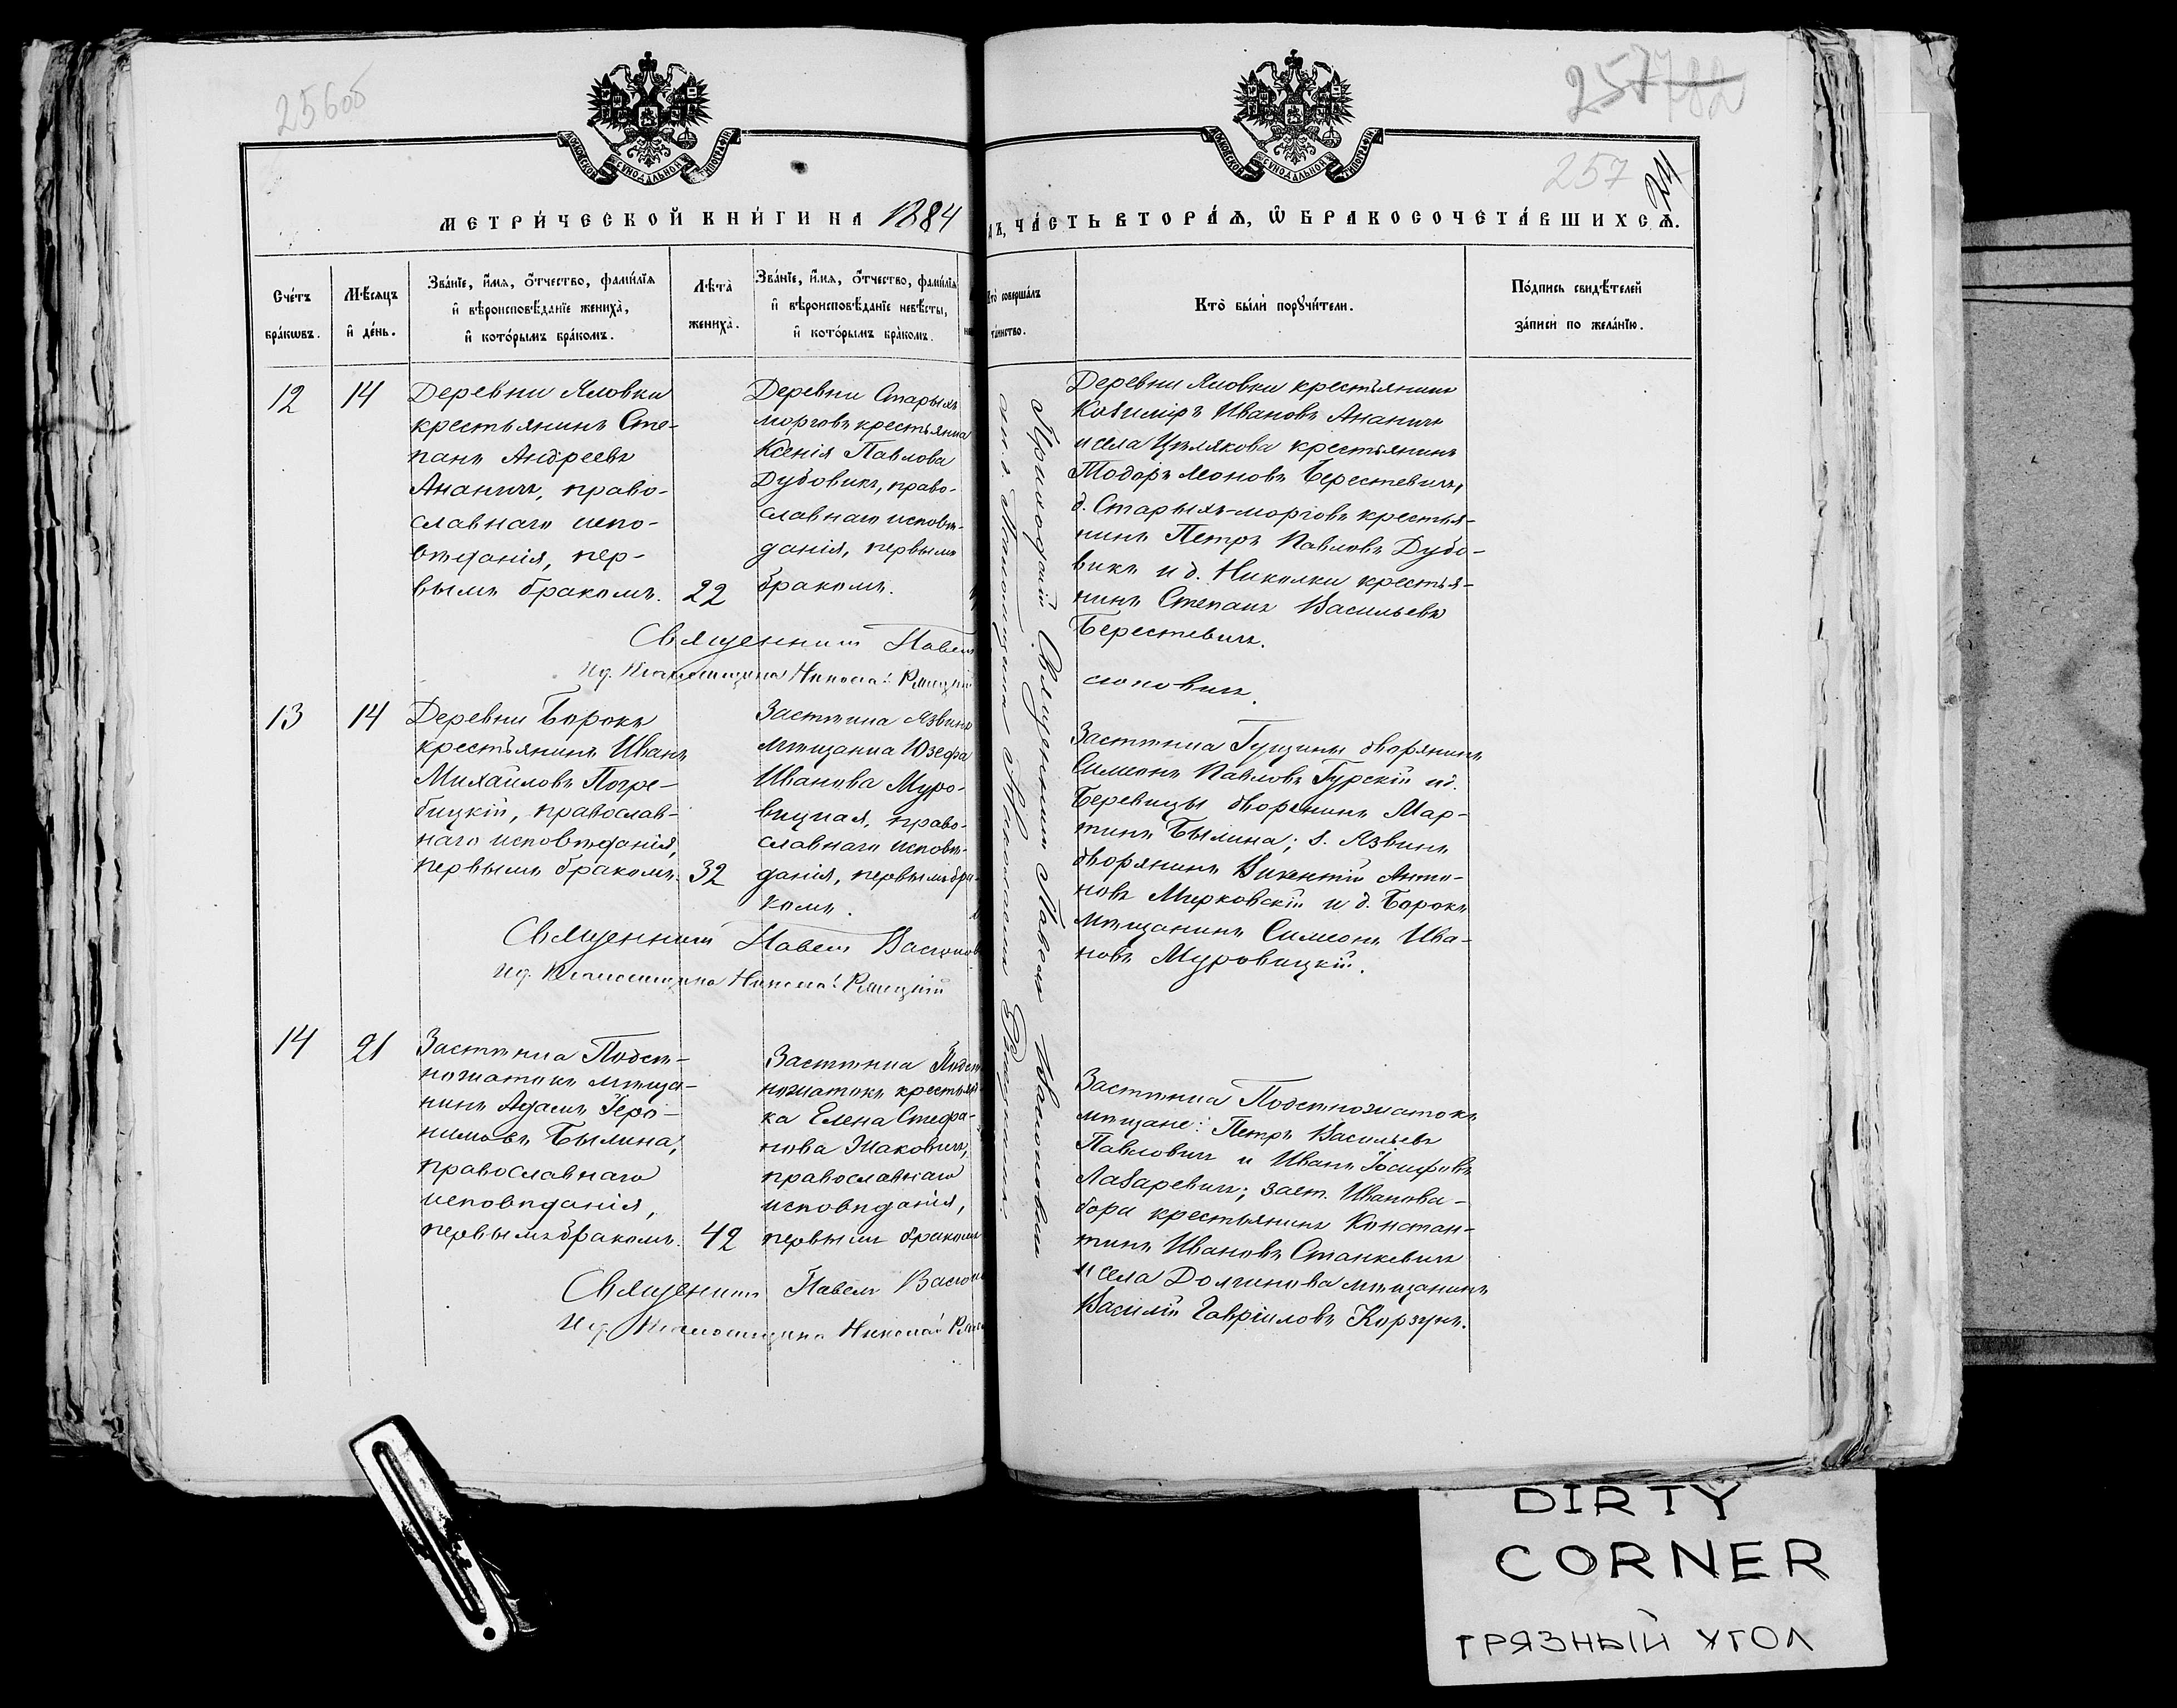 256об
257 782
257
24
МОСКОВСКОЙ СѴНОДАЛЬНОЙ ТИПОГРАФІИ
МОСКОВСКОЙ СѴНОДАЛЬНОЙ ТИПОГРАФІИ
МЕТРИ́ЧЕСКОЙ КНИ́ГИ НА 1884
ДЪ, ЧА́СТЬ ВТОРА́Ѧ, Ѽ БРАКОСОЧЕТА́ВШИХСѦ.
Сче́тъ бра́кѡвъ.
Мѣ́сѧцъ и҆ де́нь.
Зва́нїе, и҆́мѧ, ѻ҆́тчество, фами́лїѧ
и҆ вѣроисповѣ́данїе жениха̀,
и҆ кото́рымъ бра́комъ.
Лѣ́та жениха̀.
Зва́нїе, и҆́мѧ, ѻ҆́тчество, фами́лїѧ
и҆ вѣроисповѣ́данїе невѣ́сты,
и҆ кото́рымъ бра́комъ.
Кто̀ соверша́лъ
та́инство.
Кто̀ бы́ли порꙋчи́тели.
По́дпись свидѣ́телей
за́писи по жела́нїю.
12
14
Деревни Яловки
крестьянинъ Сте-
панъ Андреевъ
Ананичъ, право-
славнаго испо-
вѣданія, пер-
вымъ бракомъ.
22
Деревни Старыхъ
морговъ крестьянка
Ксенія Павлова
Дубовикъ, право-
славнаго исповѣ-
данія, первымъ
бракомъ.
Деревни Яловки крестьянинъ
Казиміръ Ивановъ Ананичъ
и села Цѣлякова крестьянинъ
Тодоръ Леоновъ Берестевичъ,
д. Старыхъ-морговъ крестья-
нинъ Петръ Павловъ Дубо-
викъ и д. Николки крестья-
нинъ Степанъ Васильевъ
Берестевичъ.
Священникъ Павелъ
сюковичъ.
Ид. Псаломщика Николай
13
14
Деревни Борокъ
крестьянинъ Иванъ
Михайловъ Погре-
бицкій, православ-
наго исповѣданія,
первымъ бракомъ.
32
Застѣнка Язвинъ
мѣщанка Юзефа
Иванова Муро-
вицкая, право-
славнаго исповѣ-
данія, первымъ бра-
комъ.
Застѣнка Гущины дворянинъ
Симеонъ Павловъ Гурскій и д.
Беревицы дворянинъ Мар-
тинъ Былина; з. Язвинъ
дворянинъ Викентій Анто-
новъ Мирковскій и д. Борокъ
мѣщанинъ Симеонъ Ива-
новъ Муровицкій.
Священникъ Павелъ
Ид. Псаломщика Николай
14
21
Застѣнка Подст-
ножатокъ мѣща-
нинъ Адамъ Іеро-
нимовъ Былина,
православнаго
исповѣданія,
первымъ бракомъ.
42
Застѣнка
ножатокъ крестьян-
ка Елена Стефа-
нова Жаковичъ,
православнаго
исповѣданія,
первымъ бракомъ
Застѣнка Подстножатокъ
мѣщане: Петръ Васильевъ
Павловичъ и Иванъ Іосифовъ
Лазаревичъ; заст. Иванова-
бора крестьянинъ Констан-
тинъ Ивановъ Станкевичъ
и села Долгинова мѣщанинъ
Василій Гавріиловъ Корзунъ.
Священникъ Павелъ
Ид. Псаломщика Николай
Приходскій Священникъ Павелъ
Псаломщика Николаемъ
DIRTY
CORNER
ГРЯЗНЫЙ УГОЛ